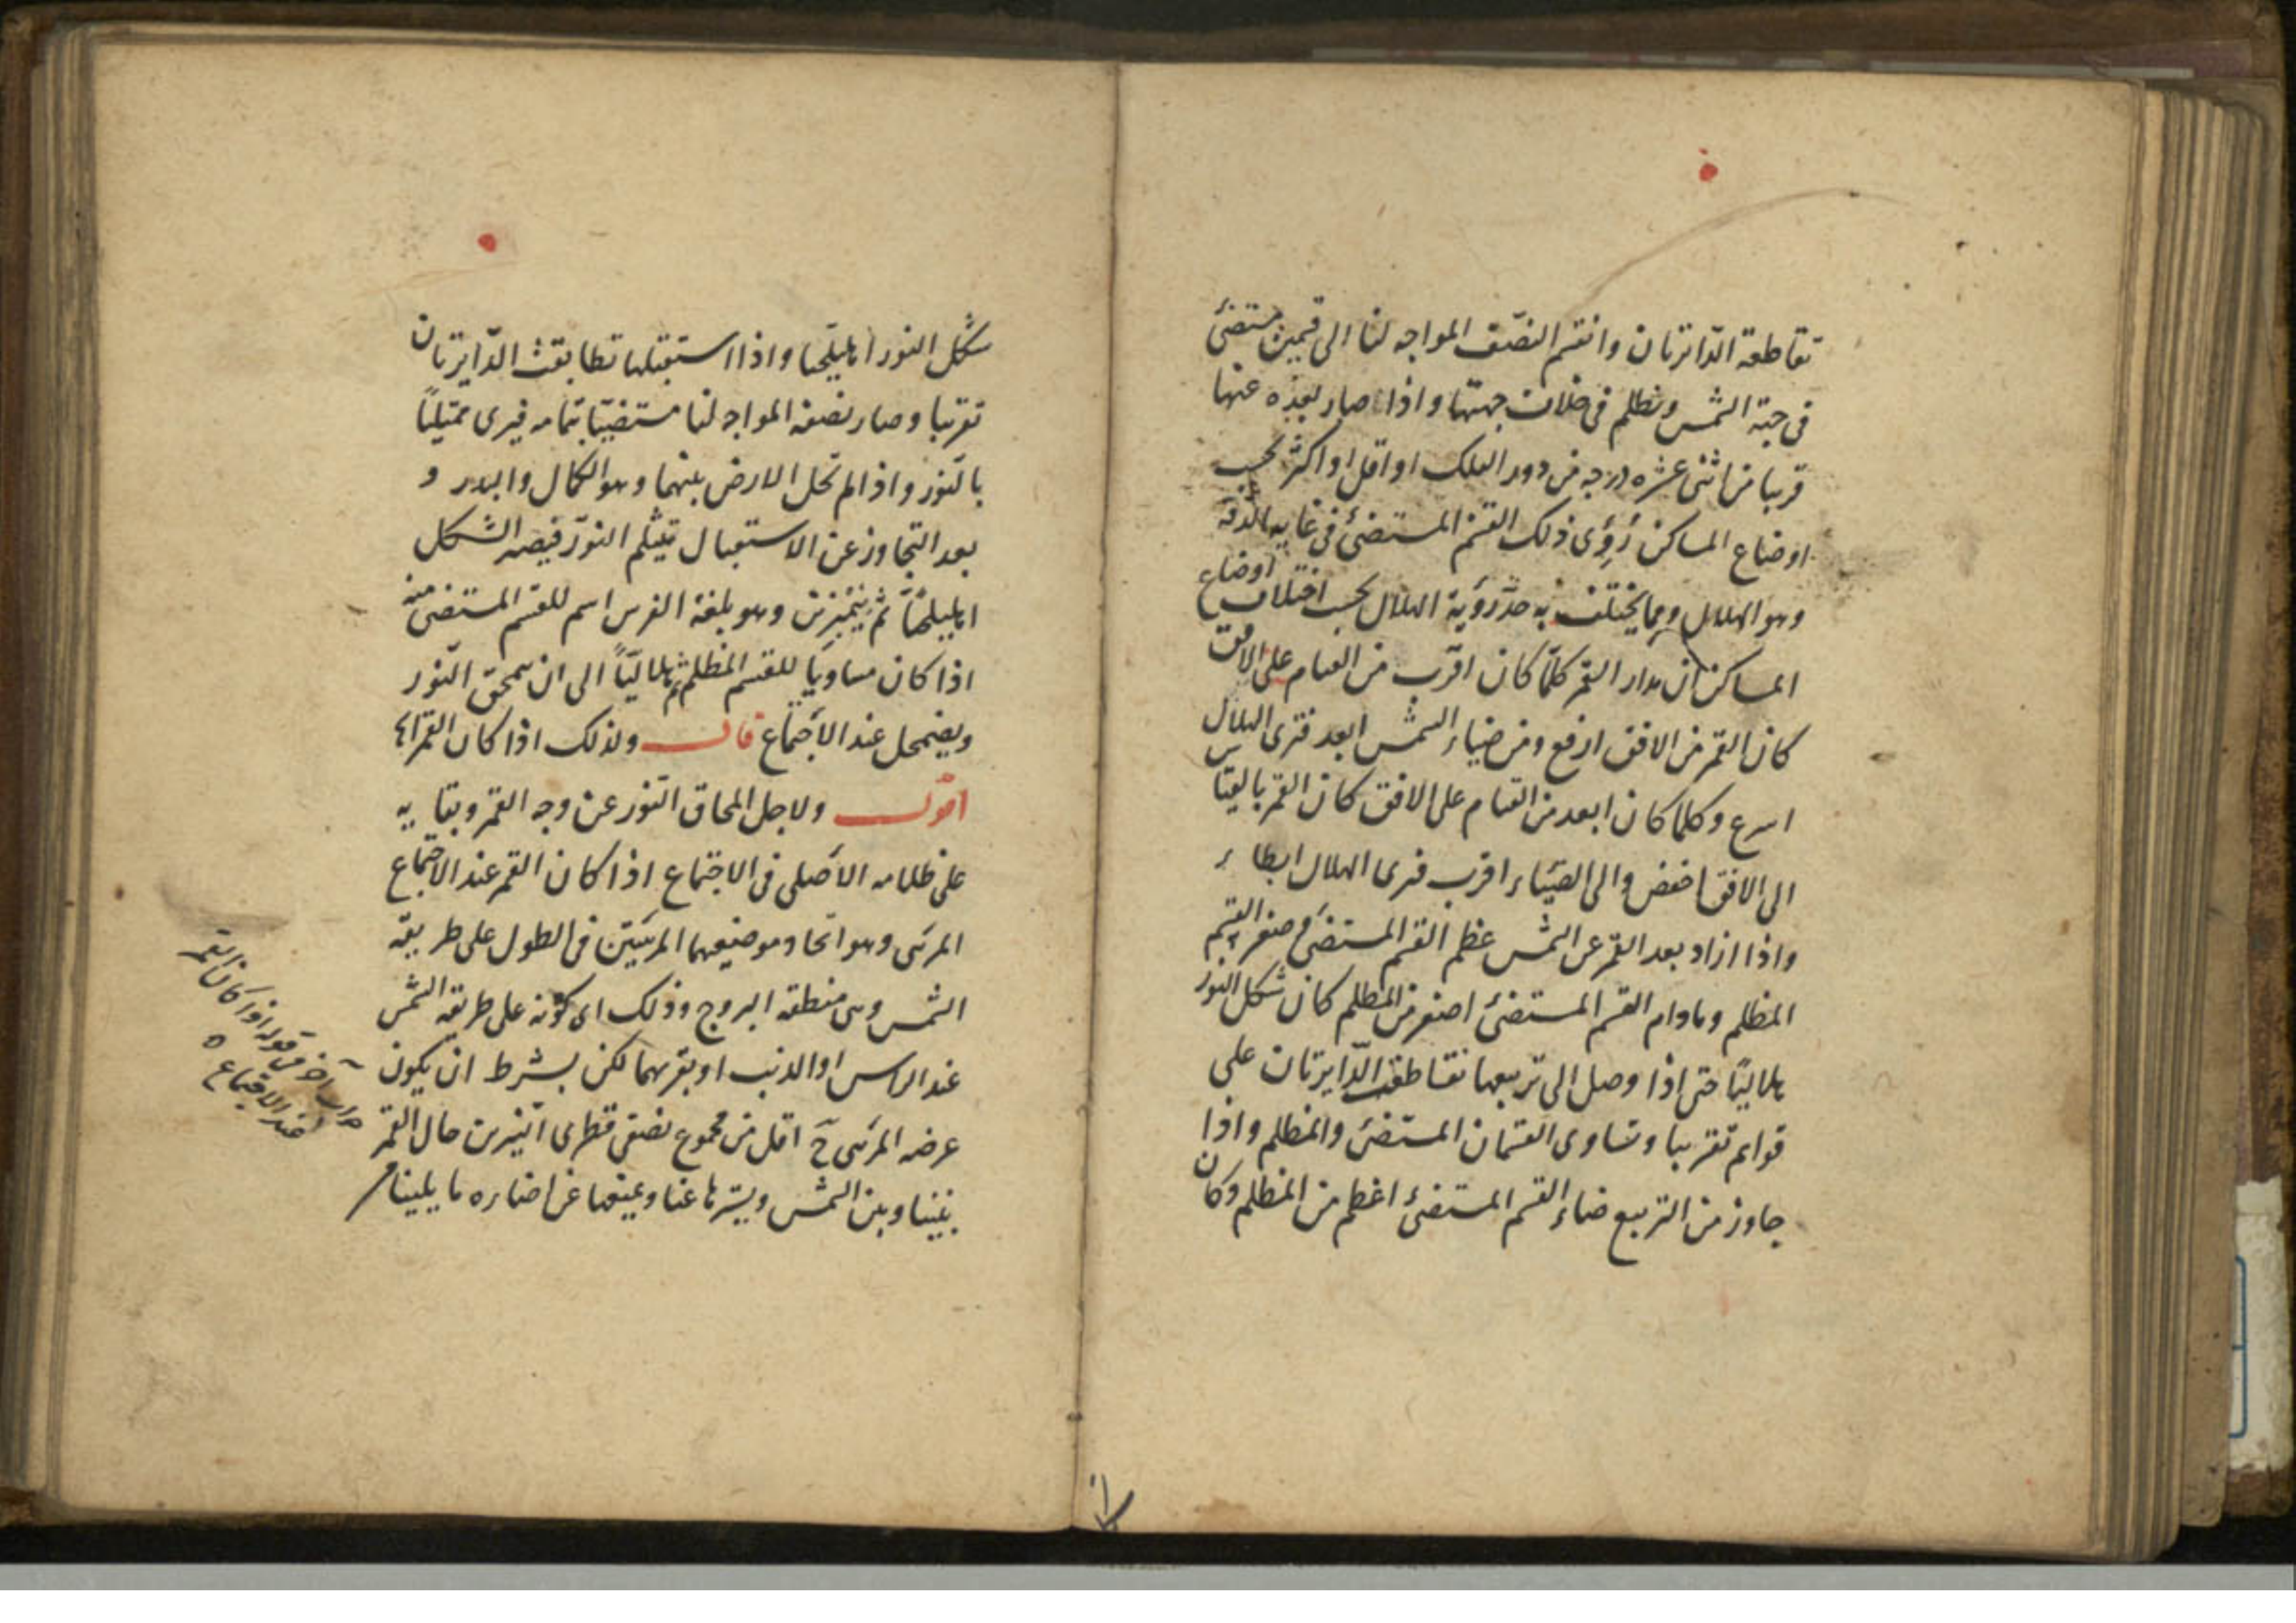 تقاطعة الدّائرتان وانقسم النصّف المواجه لنا الى قسمين مستضئ
فى جهة الشمس ومظلم فى خلاف جهتها واذا صار بعده عنها
قريبا من اثنى عشره درجه من دور الفلك او اقل او اكثر بحسب
اوضاع المساكن رُؤى ذلك القسم المستضئ فى غايه الدقه
وهو الهلال ومما يختلف به حدّ رؤية الهلال بحسب اختلاف اوضاع
المساكن ان مدار القمر كلّما كان اقرب من القيام على الافق
كان القمر من الافق ارفع ومن ضياء الشمس ابعد فترى الهلال
اسرع وكلما كان ابعد من القيام على الافق كان القمر بالقياس
الى الافق اخفض والى الضياء اقرب فيرى الهلال ابطاء
واذا ازاد بعد القمر عن الشمس عظم القسم المستضئ وصغر القسم
المظلم ومادام القسم المستضئ اصغر من المظلم كان شكل النور
هلاليّا حتى اذا وصل الى تربيعها تقاطعت الدّايرتان على
قوايم تقريبا وتساوى القسمان المستضئ والمظلم واذا
جاوز من التربيع ضاء القسم المستضئ اعظم من المظلم وكان
شكل النور اهليلجيا واذا استقبلها تطابقت الدّايرتان
تقريبا وصار نصفه المواجه لنا مستضيئا بتمامه فيرى ممتيليًا
بالنّور واذا لم تحل الارض بينهما وهو الكمال والبدر و
بعد التجاوز عن الاستقبال يتيثلم النوّر فيصير الشكل
اهليليلجيًا ثم ينمبرين وهو بلغة الفرس اسم للقسم المستضئ منه
اذا كان مساويا للقسم المظلم ثم هلاليّاً الى ان يمحق النّور
ويضمحل عند الأجتماع قال ولذلك اذا كان القمر اه
اقول ولاجل المحاق النّور عن وجه القمر وبقايه
على ظلامه الأصلى فى الاجتماع اذا كان القمر عند الاجتماع
المرئى وهو اتحاد موضعيهما المرئيّين فى الطول على طريقه
الشمس وهى منطقه البروج وذلك اى كونه على طريقه الشمس
عند الراس او الذنب او بقربهما لكن بشرط ان يكون
عرضه المرئى ح اقل من مجموع نصفى قطرى النّيّرين حال القمر
بيننا وبين الشمس ويسترها عنا ويمنعها عن اضاره ما يلينا
من قوله اذا كان القمر
عند الاجتماع ه